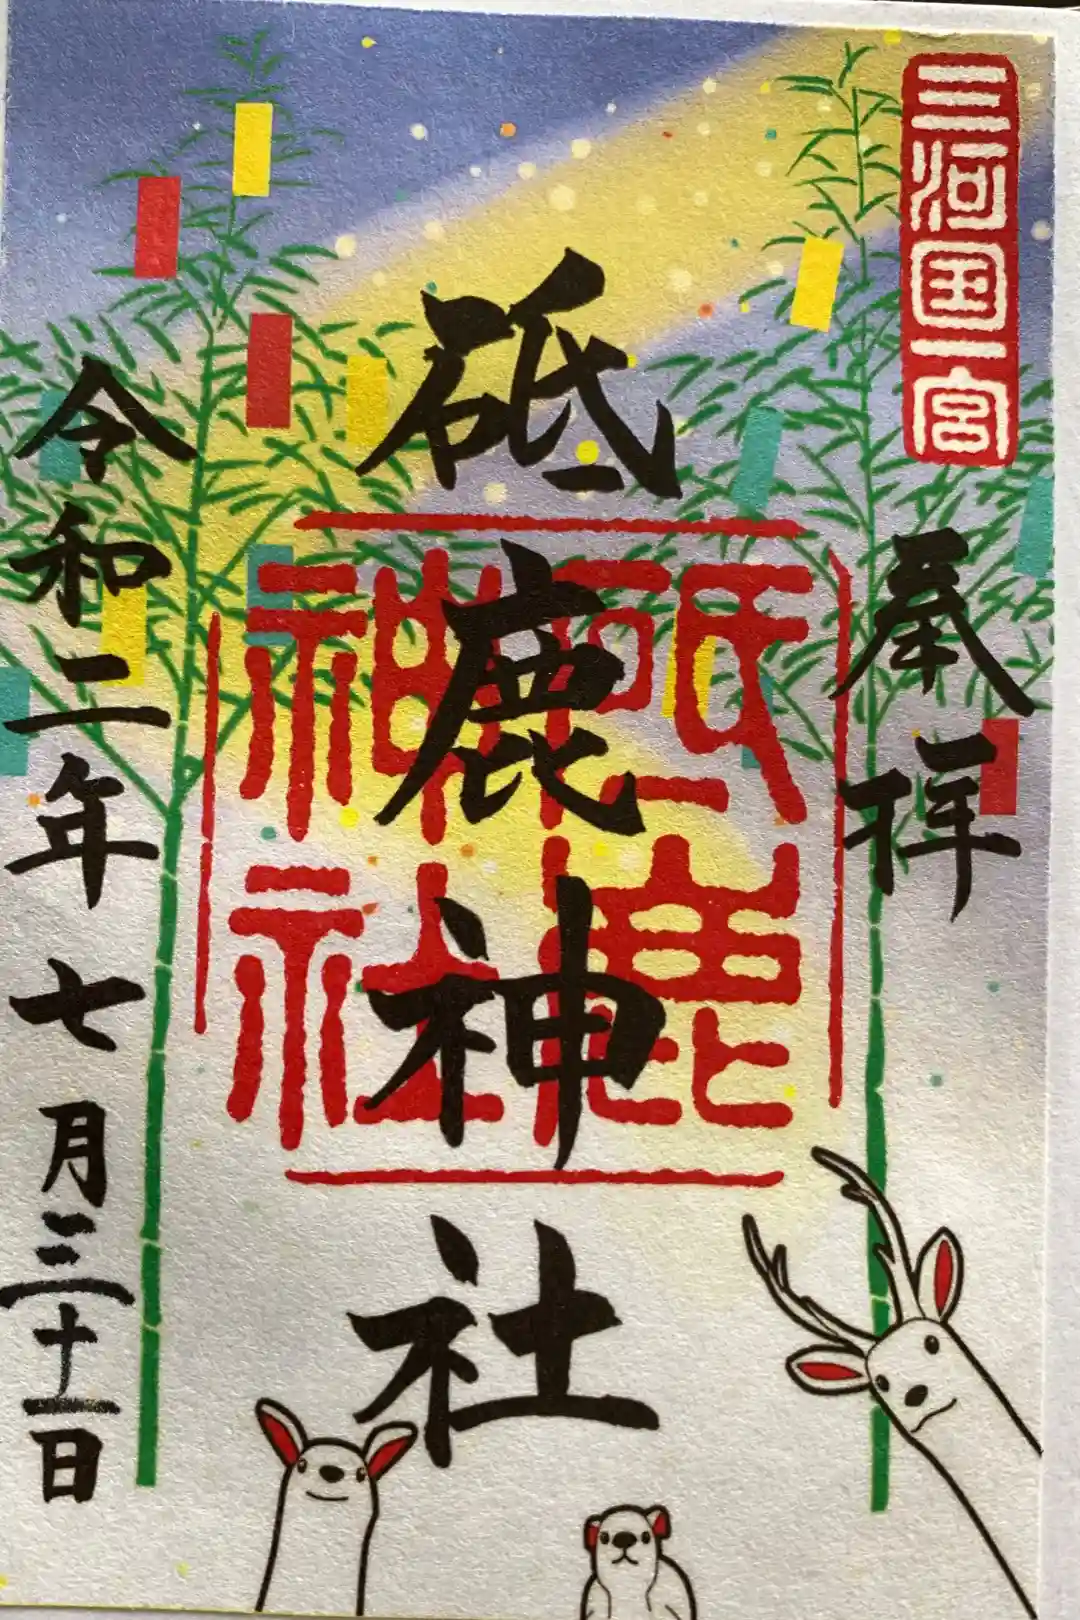 三河国一宮
奉拝
砥鹿神社
砥鹿
神社
令和二年七月三十一日